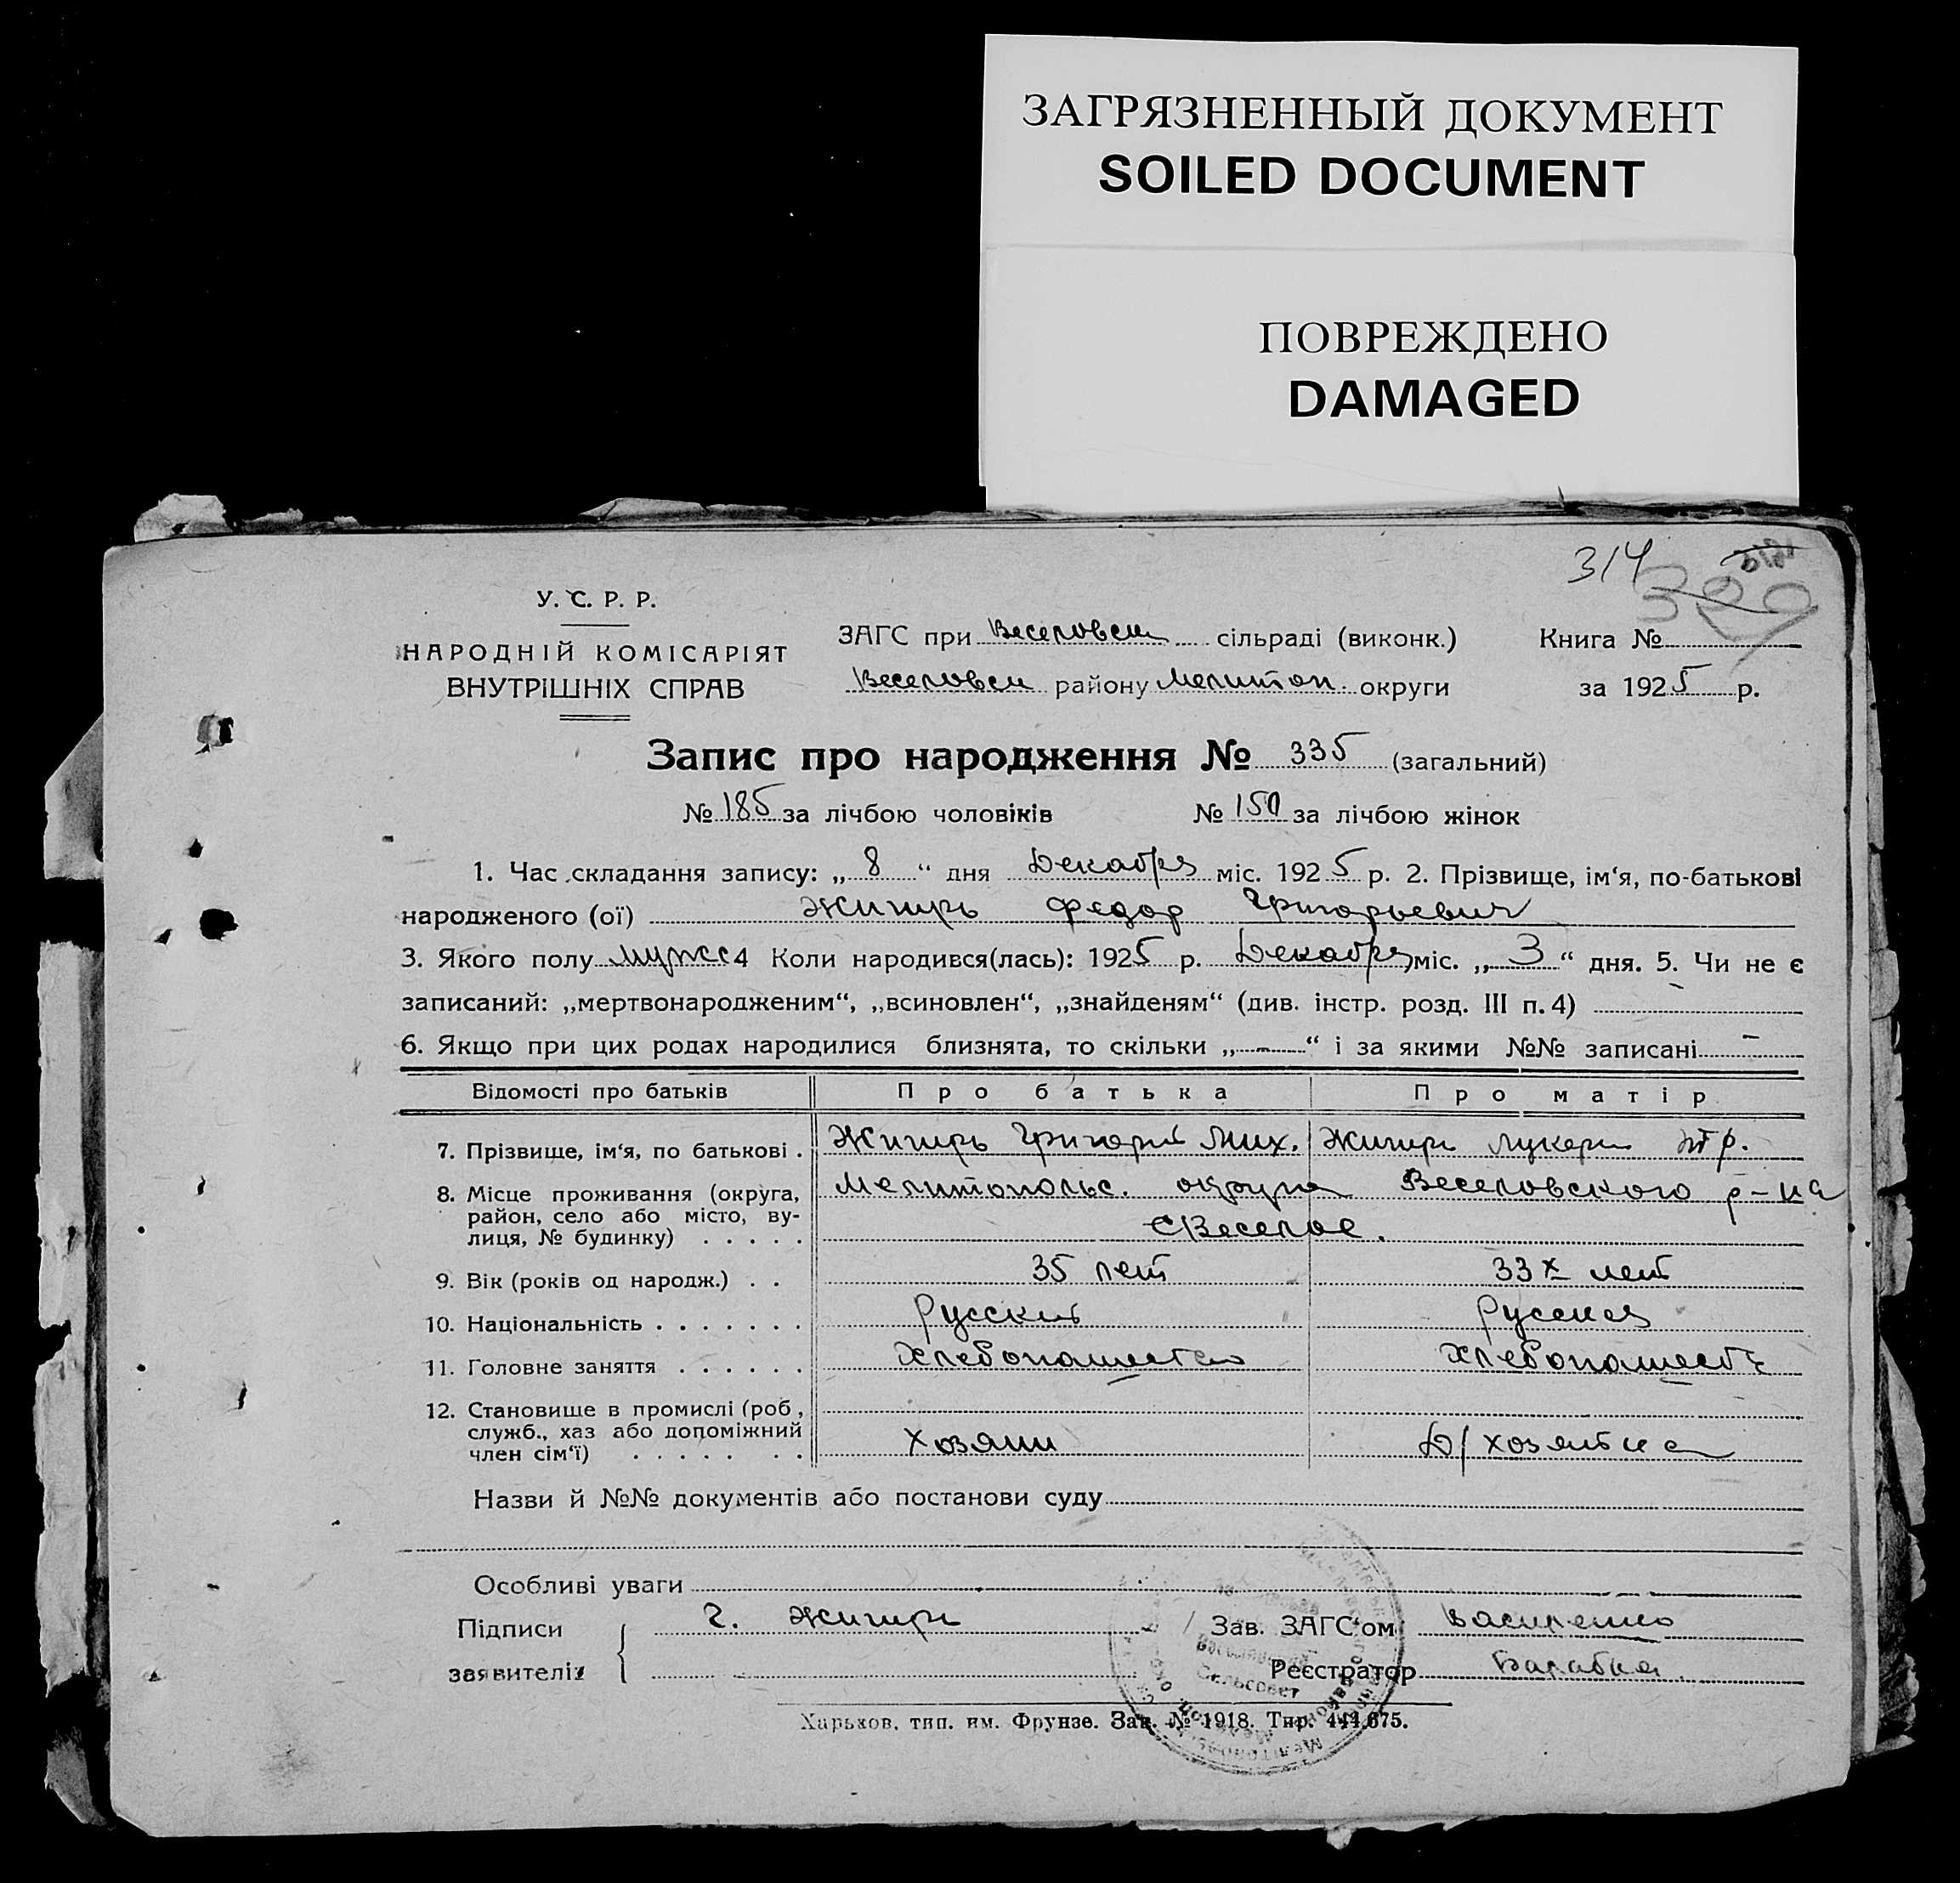 ЗАГРЯЗНЕННЫЙ ДОКУМЕНТ
SOILED DOCUMENT
ПОВРЕЖДЕНО
DAMAGED
314
320
У. С. Р. Р.
НАРОДНІЙ КОМІСАРІЯТ
ВНУТРІШНІХ СПРАВ
ЗАГС при Веселовск сільраді (виконк.) Книга №
Веселовск району Мелитоп. округи за 1925 р.
Запис про народження № 335 (загальний)
№ 185 за лічбою чоловіків № 150 за лічбою жінок
1. Час складання запису: „ 8 “ дня Декабря міс. 1925 р. 2. Прізвище, ім‘я, по-батькові
народженого (ої) Жигирь Федор Григорьевич
3. Якого полу мужс 4 Коли народився(лась): 1925 р. Декабря міс. „ 3 “ дня. 5. Чи не є
записаний: „мертвонародженим“, „всиновлен“, „знайденям“ (див. інстр. розд. III п. 4)
6. Якщо при цих родах народилися близнята, то скільки „ - “ і за якими №№ записані -
Відомості про батьків Про батька Про матір
7. Прізвище, ім‘я, по батькові . Жигирь Григорий Мих. Жигирь Лукерия
8. Місце проживання (округа, Мелитопольс. округа Веселовского р-на
район, село або місто, ву-
лиця, № будинку) . . . . . с Веселое.
9. Вік (років од народж.) . . 35 лет 33х лет
10. Національність . . . . . . . Русский Русская
11. Головне заняття . . . . . . Хлебопашество Хлебопашеств
12. Становище в промислі (роб.,
служб., хаз або допоміжний
член сім‘ї) . . . . . . . Хозяин Д/хозяйка
Назви й №№ документів або постанови суду
Особливі уваги
Підписи Г. Жигирь Зав. ЗАГС‘ом Василенко
заявителів Реєстратор
Сельсовет
Харьков, тип. им. Фрунзе. Зак. № 1918. Тир. 444.675.